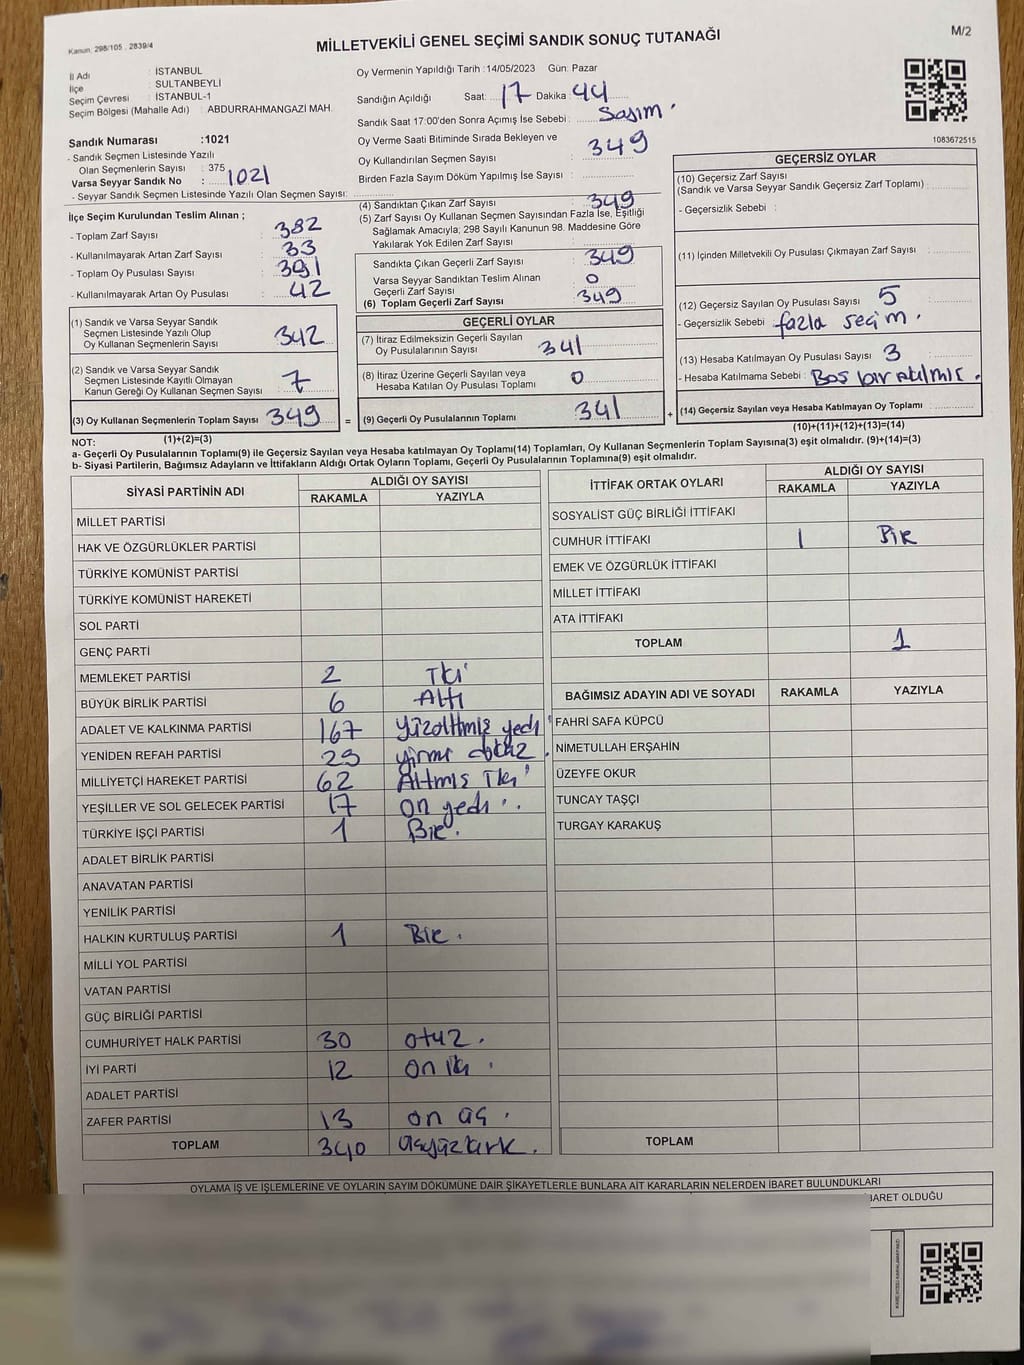 Kanun: 298/105 , 2839/4
MİLLETVEKİLİ GENEL SEÇİMİ SANDIK SONUÇ TUTANAĞI
M/2
İl Adı : İSTANBUL
İlçe : SULTANBEYLİ
Seçim Çevresi : İSTANBUL-1
Seçim Bölgesi (Mahalle Adı) : ABDURRAHMANGAZİ MAH.
Sandık Numarası :1021
- Sandık Seçmen Listesinde Yazılı
Olan Seçmenlerin Sayısı : 375
Varsa Seyyar Sandık No : 1021
- Seyyar Sandık Seçmen Listesinde Yazılı Olan Seçmen Sayısı:
İlçe Seçim Kurulundan Teslim Alınan ;
- Toplam Zarf Sayısı : 382
- Kullanılmayarak Artan Zarf Sayısı : 33
- Toplam Oy Pusulası Sayısı : 391
- Kullanılmayarak Artan Oy Pusulası : 42
(1) Sandık ve Varsa Seyyar Sandık
Seçmen Listesinde Yazılı Olup
Oy Kullanan Seçmenlerin Sayısı 342
(2) Sandık ve Varsa Seyyar Sandık
Seçmen Listesinde Kayıtlı Olmayan
Kanun Gereği Oy Kullanan Seçmen Sayısı 7
(3) Oy Kullanan Seçmenlerin Toplam Sayısı 349 =
(1)+(2)=(3)
Oy Vermenin Yapıldığı Tarih :14/05/2023 Gün: Pazar
Sandığın Açıldığı Saat: 17 Dakika: 44
Sandık Saat 17:00'den Sonra Açımış İse Sebebi : Sayım.
Oy Verme Saati Bitiminde Sırada Bekleyen ve
Oy Kullandırılan Seçmen Sayısı : 349
Birden Fazla Sayım Döküm Yapılmış İse Sayısı :
(4) Sandıktan Çıkan Zarf Sayısı : 349
(5) Zarf Sayısı Oy Kullanan Seçmen Sayısından Fazla İse, Eşitliği
Sağlamak Amacıyla; 298 Sayılı Kanunun 98. Maddesine Göre
Yakılarak Yok Edilen Zarf Sayısı :
Sandıkta Çıkan Geçerli Zarf Sayısı : 349
Varsa Seyyar Sandıktan Teslim Alınan
Geçerli Zarf Sayısı : 0
(6) Toplam Geçerli Zarf Sayısı : 349
GEÇERLİ OYLAR
(7) İtiraz Edilmeksizin Geçerli Sayılan
Oy Pusulalarının Sayısı 341
(8) İtiraz Üzerine Geçerli Sayılan veya
Hesaba Katılan Oy Pusulası Toplamı 0
(9) Geçerli Oy Pusulalarının Toplamı 341 +
1083672515
GEÇERSİZ OYLAR
(10) Geçersiz Zarf Sayısı
(Sandık ve Varsa Seyyar Sandık Geçersiz Zarf Toplamı) :
- Geçersizlik Sebebi :
(11) İçinden Milletvekili Oy Pusulası Çıkmayan Zarf Sayısı :
(12) Geçersiz Sayılan Oy Pusulası Sayısı 5
- Geçersizlik Sebebi fazla seçim.
(13) Hesaba Katılmayan Oy Pusulası Sayısı 3
- Hesaba Katılmama Sebebi : Boş bırakılmış.
(14) Geçersiz Sayılan veya Hesaba Katılmayan Oy Toplamı
(10)+(11)+(12)+(13)=(14)
NOT:
a- Geçerli Oy Pusulalarının Toplamı(9) ile Geçersiz Sayılan veya Hesaba katılmayan Oy Toplamı(14) Toplamları, Oy Kullanan Seçmenlerin Toplam Sayısına(3) eşit olmalıdır. (9)+(14)=(3)
b- Siyasi Partilerin, Bağımsız Adayların ve İttifakların Aldığı Ortak Oyların Toplamı, Geçerli Oy Pusulalarının Toplamına(9) eşit olmalıdır.
SİYASİ PARTİNİN ADI ALDIĞI OY SAYISI
RAKAMLA YAZIYLA
MİLLET PARTİSİ
HAK VE ÖZGÜRLÜKLER PARTİSİ
TÜRKİYE KOMÜNİST PARTİSİ
TÜRKİYE KOMÜNİST HAREKETİ
SOL PARTİ
GENÇ PARTİ
MEMLEKET PARTİSİ 2 İki
BÜYÜK BİRLİK PARTİSİ 6 Altı
ADALET VE KALKINMA PARTİSİ 167 Yüzaltmış yedi
YENİDEN REFAH PARTİSİ 29 yirmi dokuz.
MİLLİYETÇİ HAREKET PARTİSİ 62 Altmış İki
YEŞİLLER VE SOL GELECEK PARTİSİ 17 on yedi.
TÜRKİYE İŞÇİ PARTİSİ 1 Bir.
ADALET BİRLİK PARTİSİ
ANAVATAN PARTİSİ
YENİLİK PARTİSİ
HALKIN KURTULUŞ PARTİSİ 1 Bir.
MİLLİ YOL PARTİSİ
VATAN PARTİSİ
GÜÇ BİRLİĞİ PARTİSİ
CUMHURİYET HALK PARTİSİ 30 otuz.
İYİ PARTİ 12 on iki.
ADALET PARTİSİ
ZAFER PARTİSİ 13 on üç.
TOPLAM 340 üçyüzkırk.
İTTİFAK ORTAK OYLARI ALDIĞI OY SAYISI
RAKAMLA YAZIYLA
SOSYALİST GÜÇ BİRLİĞİ İTTİFAKI
CUMHUR İTTİFAKI 1 Bir
EMEK VE ÖZGÜRLÜK İTTİFAKI
MİLLET İTTİFAKI
ATA İTTİFAKI
TOPLAM 1
BAĞIMSIZ ADAYIN ADI VE SOYADI RAKAMLA YAZIYLA
FAHRİ SAFA KÜPCÜ
NİMETULLAH ERŞAHİN
ÜZEYFE OKUR
TUNCAY TAŞÇI
TURGAY KARAKUŞ
TOPLAM
OYLAMA İŞ VE İŞLEMLERİNE VE OYLARIN SAYIM DÖKÜMÜNE DAİR ŞİKAYETLERLE BUNLARA AİT KARARLARIN NELERDEN İBARET BULUNDUKLARI
İBARET OLDUĞU